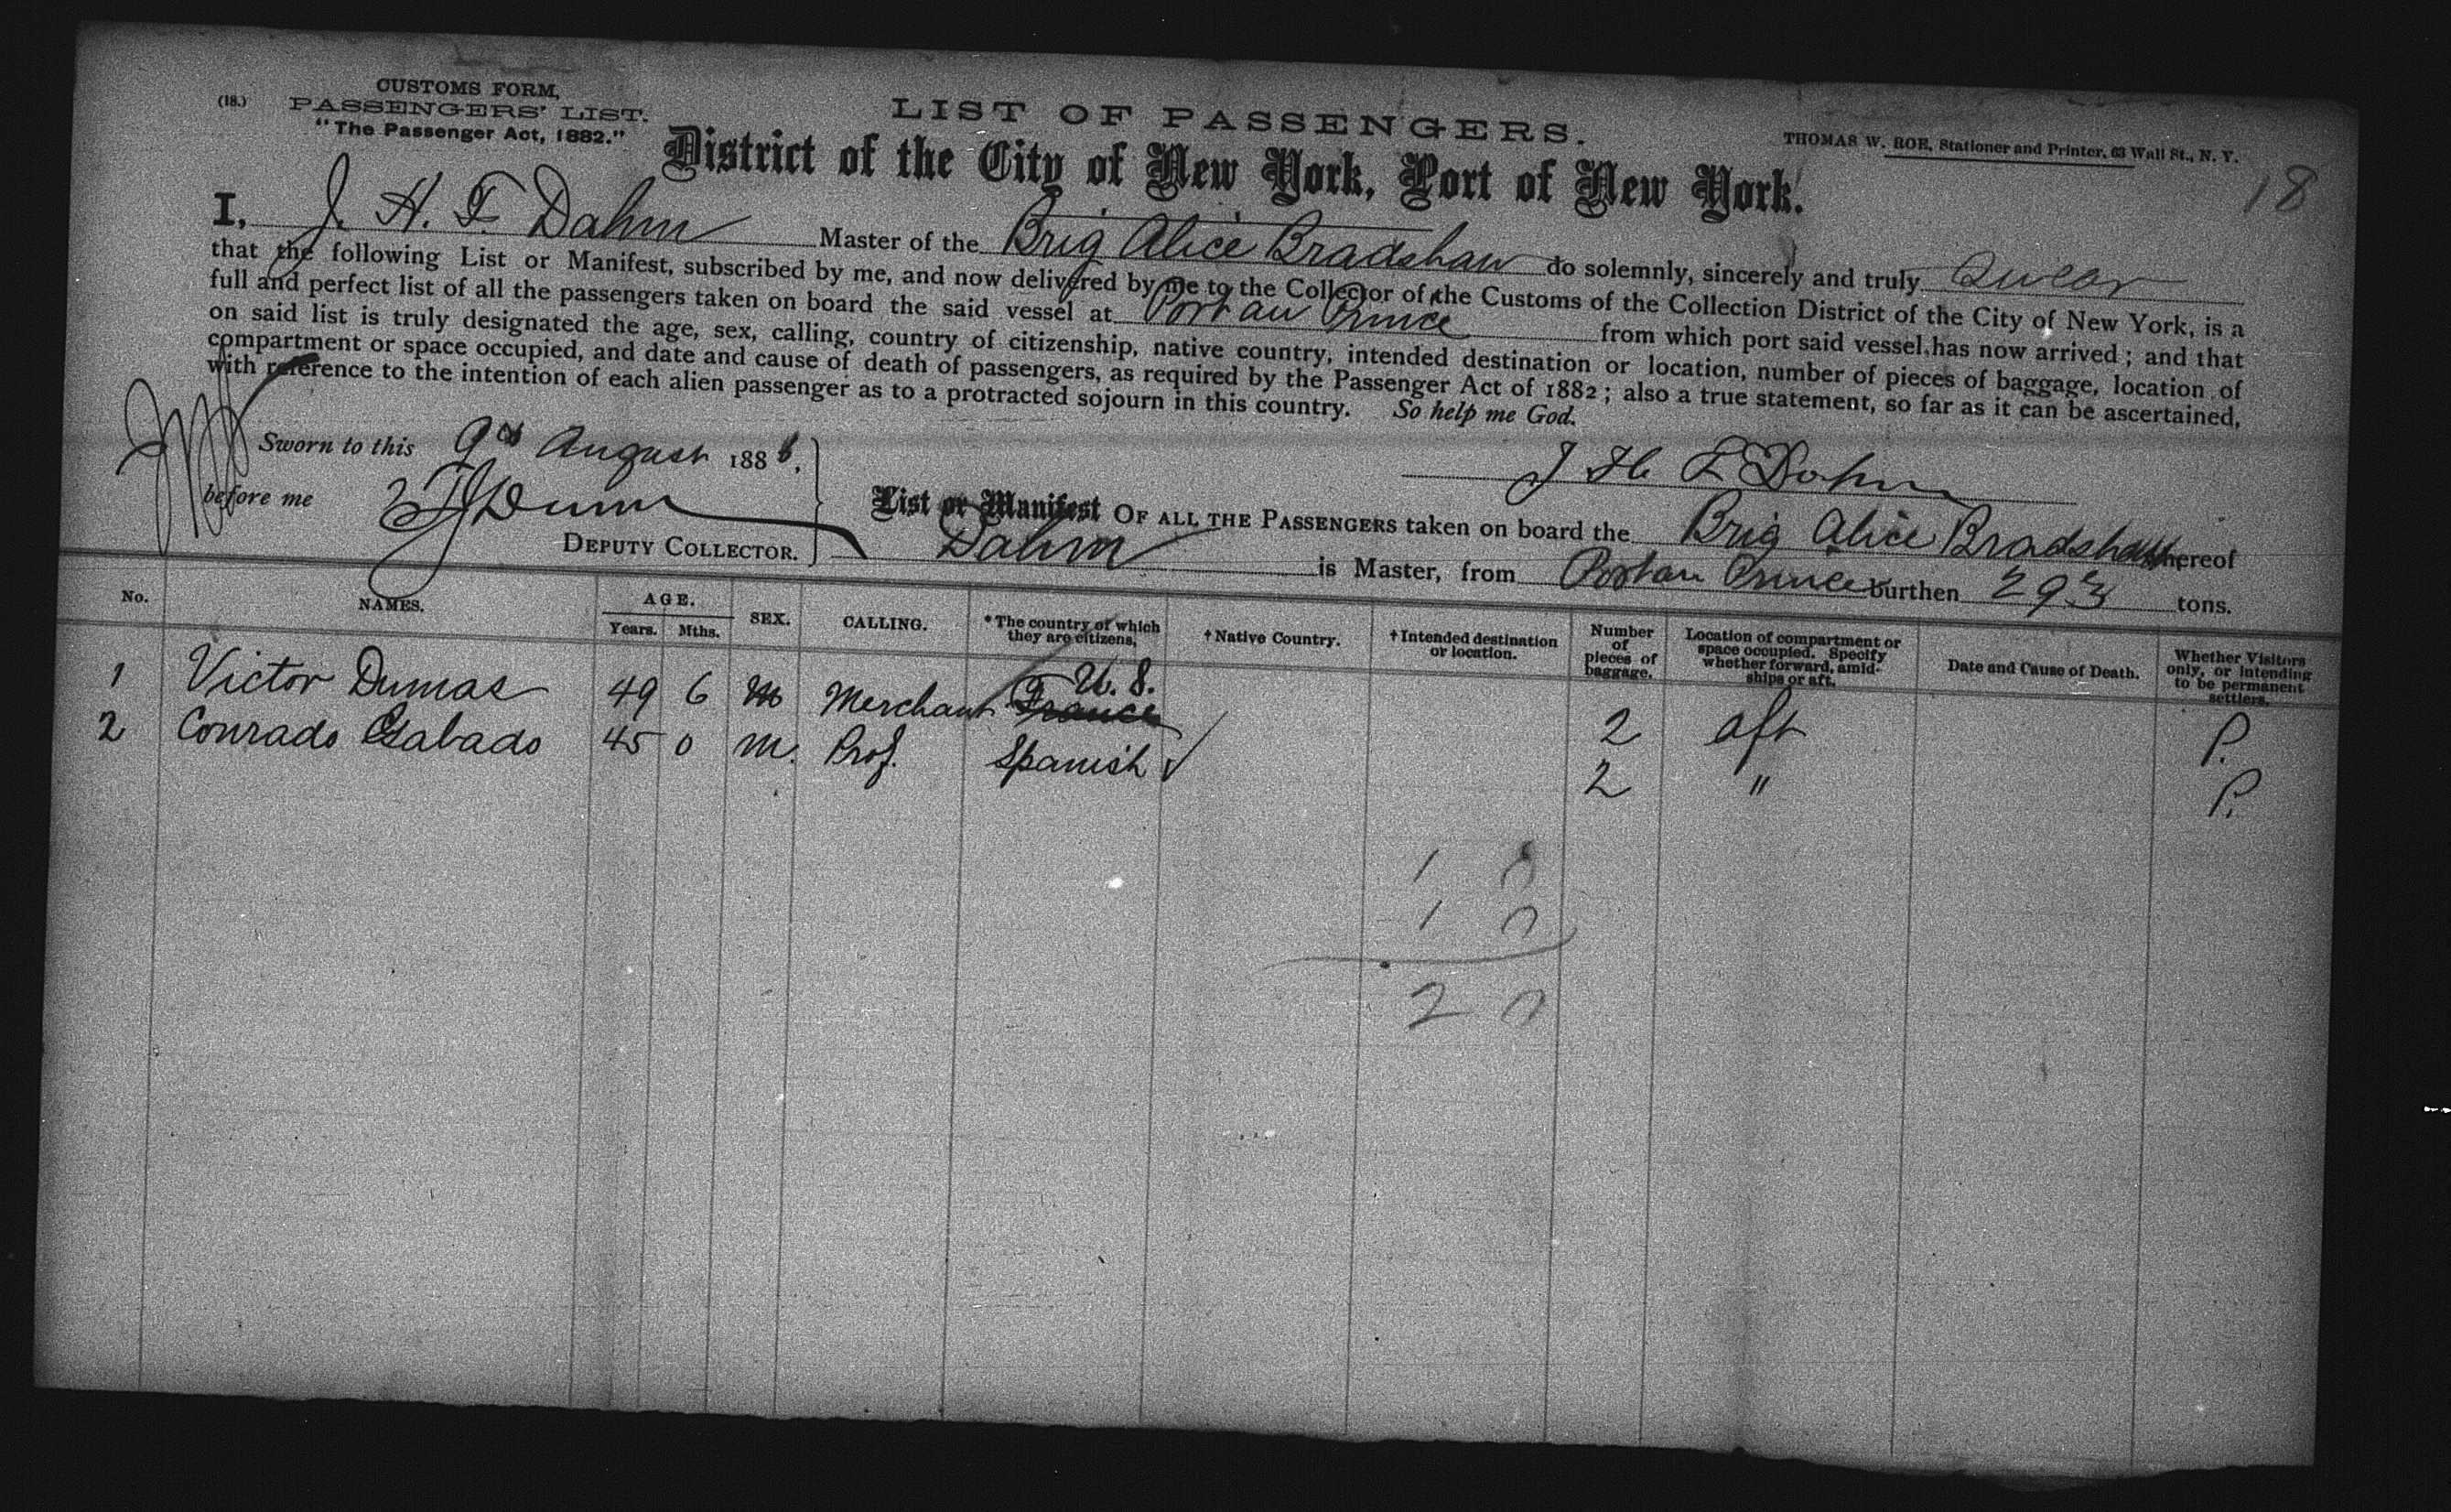 (18.)
CUSTOMS FORM,
PASSENGERS' LIST.
"The Passenger Act, 1882."
LIST OF PASSENGERS.
THOMAS W. ROE, Stationer and Printer, 63 Wall St., N. Y.
18
District of the City of New York, Port of New York.
I, J. H. F. Dahm Master of the Brig Alice Bradshaw do solemnly, sincerely and truly Swear
that the following List or Manifest, subscribed by me, and now delivered by me to the Collector of the Customs of the Collection District of the City of New York, is a
full and perfect list of all the passengers taken on board the said vessel at Port au Prince from which port said vessel has now arrived; and that
on said list is truly designated the age, sex, calling, country of citizenship, native country, intended destination or location, number of pieces of baggage, location of
compartment or space occupied, and date and cause of death of passengers, as required by the Passenger Act of 1882; also a true statement, so far as it can be ascertained,
with reference to the intention of each alien passenger as to a protracted sojourn in this country. So help me God.
Sworn to this 9th August 1886.
J H F Dahm
before me Dunn
DEPUTY COLLECTOR.
List or Manifest OF ALL THE PASSENGERS taken on board the Brig Alice Bradshaw whereof
Dahm is Master, from Port au Prince burthen 293 tons.
No. NAMES. AGE. Years. Mths. SEX. CALLING. *The country of which they are citizens. †Native Country. †Intended destination or location. Number of pieces of baggage. Location of compartment or space occupied. Specify whether forward, amidships or aft. Date and Cause of Death. Whether Visitors only, or intending to be permanent settlers.
1 Victor Dumas 49 6 M Merchant France U. S. 2 aft P.
2 Conrado Gabado 45 0 M. Prof. Spanish ✓ 2 " P.
1
1
2